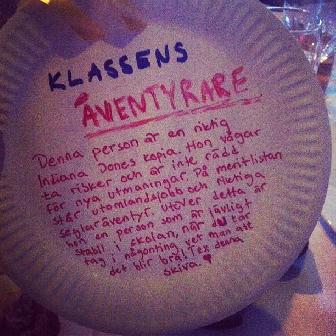 KLASSENS
ÄVENTYRARE
Denna person är en riktig
Indiana Jones kopia. Hon vågar
ta risker och är inte rädd
för nya utmaningar. På meritlistan
står utomlandsjobb och riktiga
seglaräventyr. Utöver detta är
hon en person som är jävligt
stabil i skolan, när du tar
tag i någonting vet man att
det blir bra! Tex denna
skiva. ♥